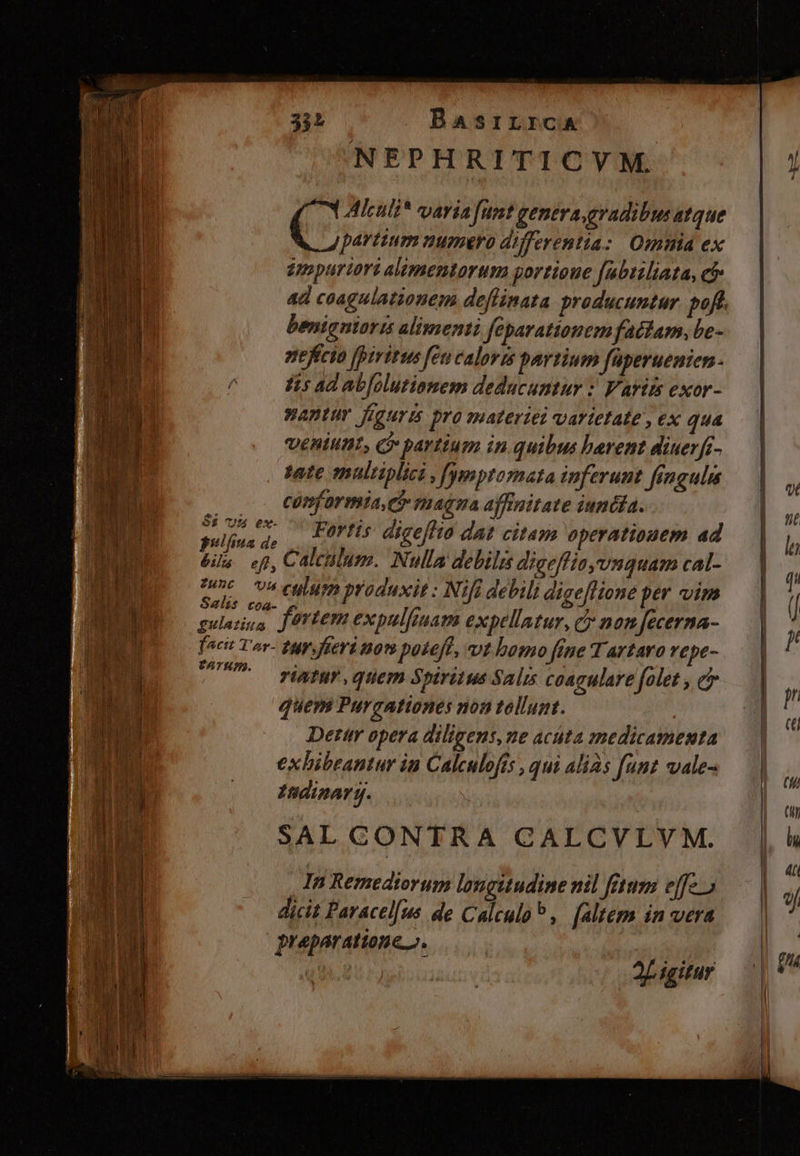 332 BASILICA
NEPHRITICVM.
CAlculiᵃ varia sunt genera, gradibus atque
partium numero differentia: Omnia ex
impuriori alimentorum portione subtiliata, &
ad coagulationem destinata producuntur post.
benignioris alimenti separationem factam, be-
neficio spiritus seu caloris partium superuenien-
tis ad absolutionem deducuntur: Variis exor-
nantur figuris pro materiei varietate, ex qua
veniunt, & partium in quibus harent diuersi-
tate multiplici, symptomata inferunt singulis
conformia, & magna affinitate iuncta.
Fortis digestio dat citam operationem ad
Calculum. Nulla debilis digestio, vnquam cal-
culum produxit: Nisi debili digestione per vim
fortem expulsiuam expellatur, & non secerna-
tur, fieri non potest, vt homo sine Tartaro repe-
riatur, quem Spiritus Salis coagulare solet, &
quem Purgationes non tollunt.
Detur opera diligens, ne acuta medicamenta
exhibeantur in Calculosis, qui aliàs sunt vale-
tudinarij.
SAL CONTRA CALCVLVM.
In Remediorum longitudine nil situm esse
dicit Paracelsus de Calculo ᵇ, saltem in vera
praparatione.
igitur
Si vis ex-
pulsiua de
bilis est,
tunc vis
Salis coa-
gulatiua
facit Tar-
tarum.